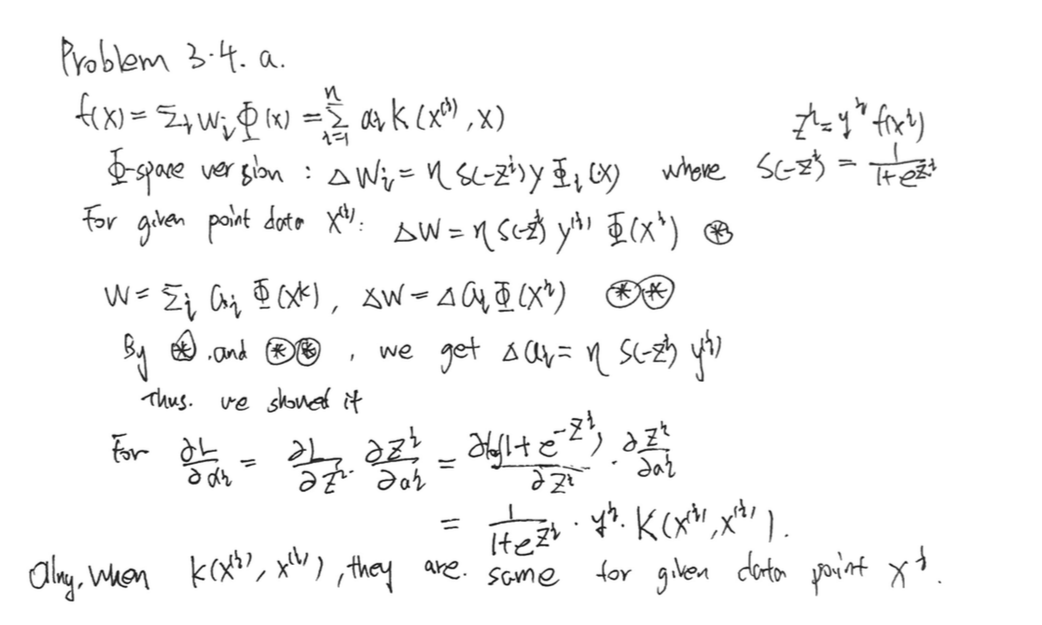 Problem 3.4. a.
f(x) = Σ_i w_i Φ(x) = Σ_{i=1}^{n} α_i K(x^{(i)}, x)
z^i = y^i f(x^i)
Φ-space version : Δw_i = η S(-z^i) y Φ_i(x) where S(-z^i) = 1/(1+e^{z^i})
For given point data x^{(i)}: Δw = η S(-z^i) y^{(i)} Φ(x^i) ⊛
w = Σ_i α_i Φ(x^k), Δw = Δα_i Φ(x^i) ⊛⊛
By ⊛, and ⊛⊛, we get Δα_i = η S(-z^i) y^{(i)}
Thus. we showed it
For ∂L/∂α_i = ∂L/∂z^i · ∂z^i/∂α_i = ∂log(1+e^{-z^i})/∂z^i · ∂z^i/∂α_i
= 1/(1+e^{z^i}) · y^i · K(x^{(i)}, x^{(i)}).
when K(x^{(i)}, x^{(i)}), they are. same for given data point x^i.